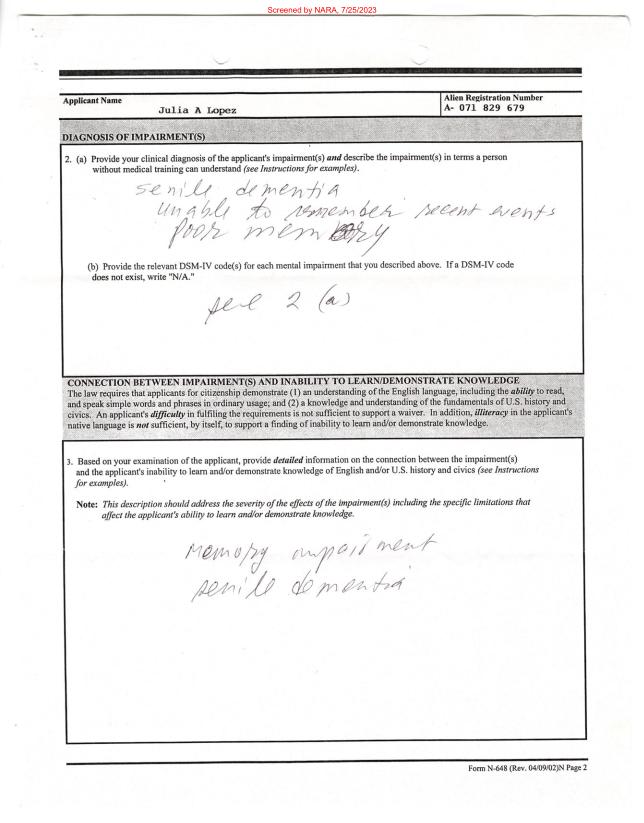 Screened by NARA, 7/25/2023
Applicant Name
Julia A Lopez
Alien Registration Number
A- 071 829 679
DIAGNOSIS OF IMPAIRMENT(S)
2. (a) Provide your clinical diagnosis of the applicant's impairment(s) and describe the impairment(s) in terms a person
without medical training can understand (see Instructions for examples).
senile dementia
unable to remember recent events
poor memory
(b) Provide the relevant DSM-IV code(s) for each mental impairment that you described above. If a DSM-IV code
does not exist, write "N/A."
2 (a)
CONNECTION BETWEEN IMPAIRMENT(S) AND INABILITY TO LEARN/DEMONSTRATE KNOWLEDGE
The law requires that applicants for citizenship demonstrate (1) an understanding of the English language, including the ability to read,
and speak simple words and phrases in ordinary usage; and (2) a knowledge and understanding of the fundamentals of U.S. history and
civics. An applicant's difficulty in fulfiling the requirements is not sufficient to support a waiver. In addition, illiteracy in the applicant's
native language is not sufficient, by itself, to support a finding of inability to learn and/or demonstrate knowledge.
3. Based on your examination of the applicant, provide detailed information on the connection between the impairment(s)
and the applicant's inability to learn and/or demonstrate knowledge of English and/or U.S. history and civics (see Instructions
for examples).
Note: This description should address the severity of the effects of the impairment(s) including the specific limitations that
affect the applicant's ability to learn and/or demonstrate knowledge.
memory impairment
senile dementia
Form N-648 (Rev. 04/09/02)N Page 2